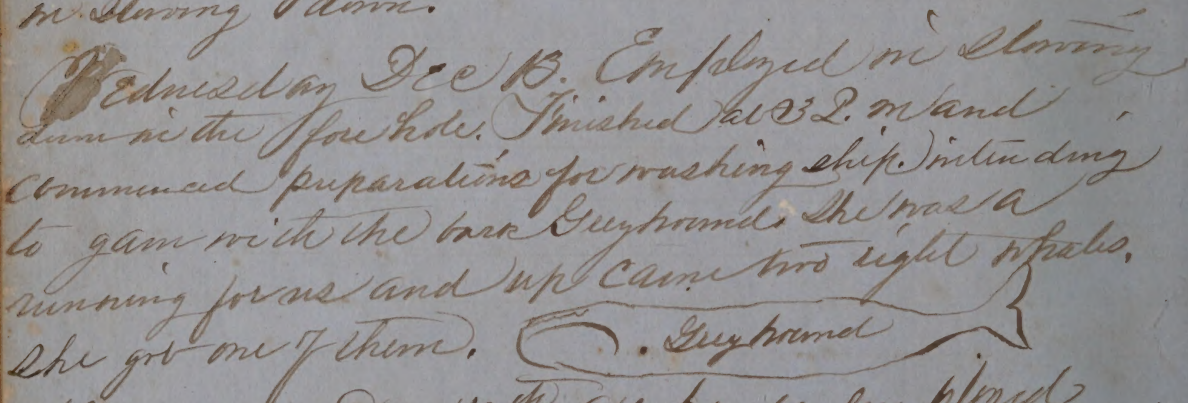 in stowing down.
Wednesday Dec 13. Employed in stowing
down in the fore hole. Finished at 3 P. m and
commenced preparations for washing ship. intending
to gam with the bark Greyhound. She was a
running for us and up came two right whales.
She got one of them. Greyhound